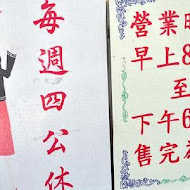 每週四公休
營業時
早上8
至
下午6
售完為